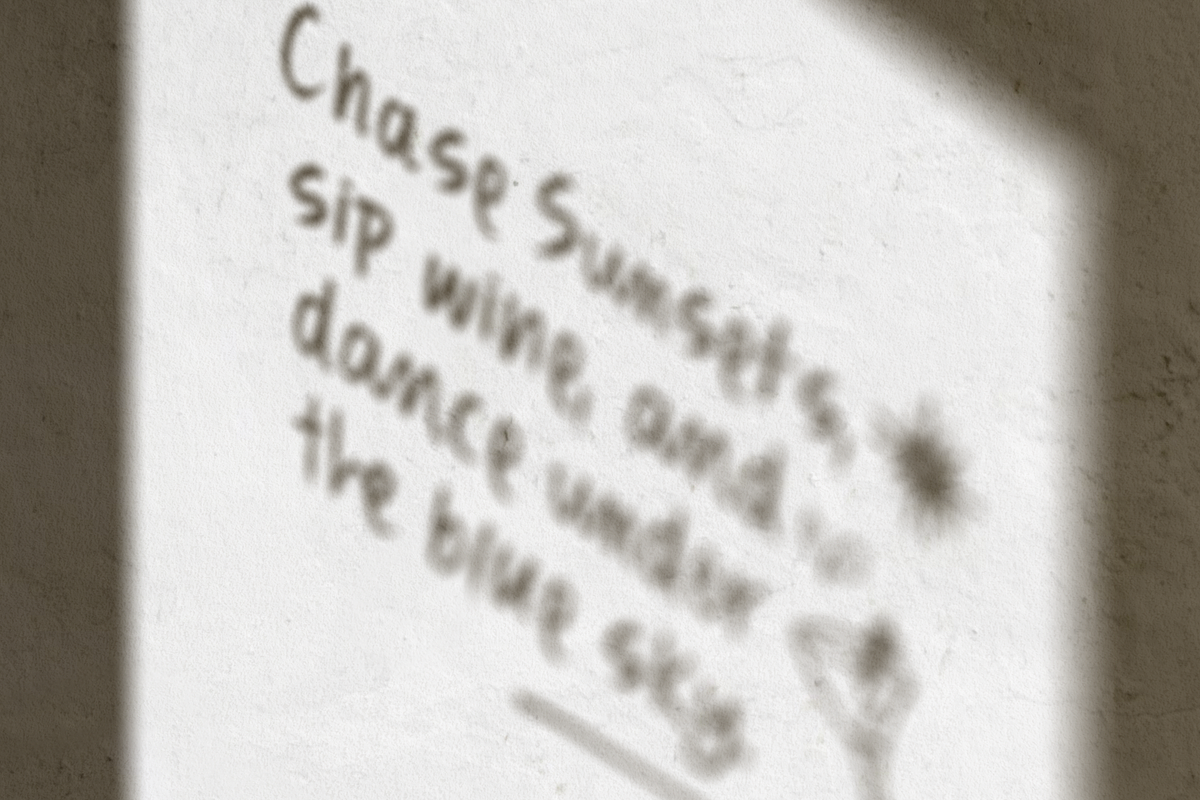 Chase Sunsets,
sip wine, and
dance under
the blue sky